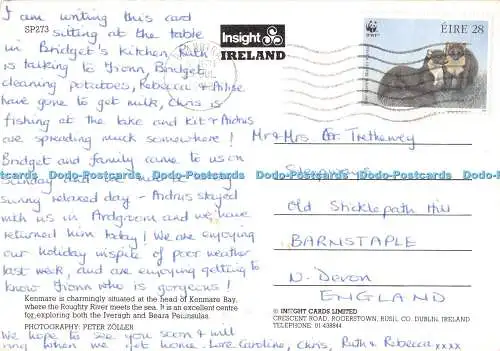 I am writing this card
SP273
sitting at the table
in Bridget's kitchen, Ruth
is talking to Fionn, Bridget
cleaning potatoes, Rebecca &
have gone to get milk, Chris is
fishing at the lake and Kit & Andrus
are spreading muck somewhere!
Bridget and family came to us on
Sunday and we
sunny relaxed day - Andrus stayed
with us in Ardgroom and we have
returned him today! We are enjoying
our holiday inspite of poor weather
last week, and are enjoying getting to
know Fionn who is gorgeous!
Kenmare is charmingly situated at the head of Kenmare Bay,
where the Roughty River meets the sea. It is an excellent centre
for exploring both the Iveragh and Beara Peninsulas.
PHOTOGRAPHY: PETER ZÖLLER
We hope to see you soon & will
ring when we get home. Love Caroline, Chris, Ruth & Rebecca xxxx
Insight
IRELAND
WWF
ÉIRE 28
Mr & Mrs Trethewey
Old Sticklepath Hill
BARNSTAPLE
N. Devon
ENGLAND
© INSIGHT CARDS LIMITED
CRESCENT ROAD, ROGERSTOWN, RUSH, CO. DUBLIN, IRELAND
TELEPHONE: 01-438944
Docks-Postcards Docks-Postcards Docks-Postcards Docks-Postcards